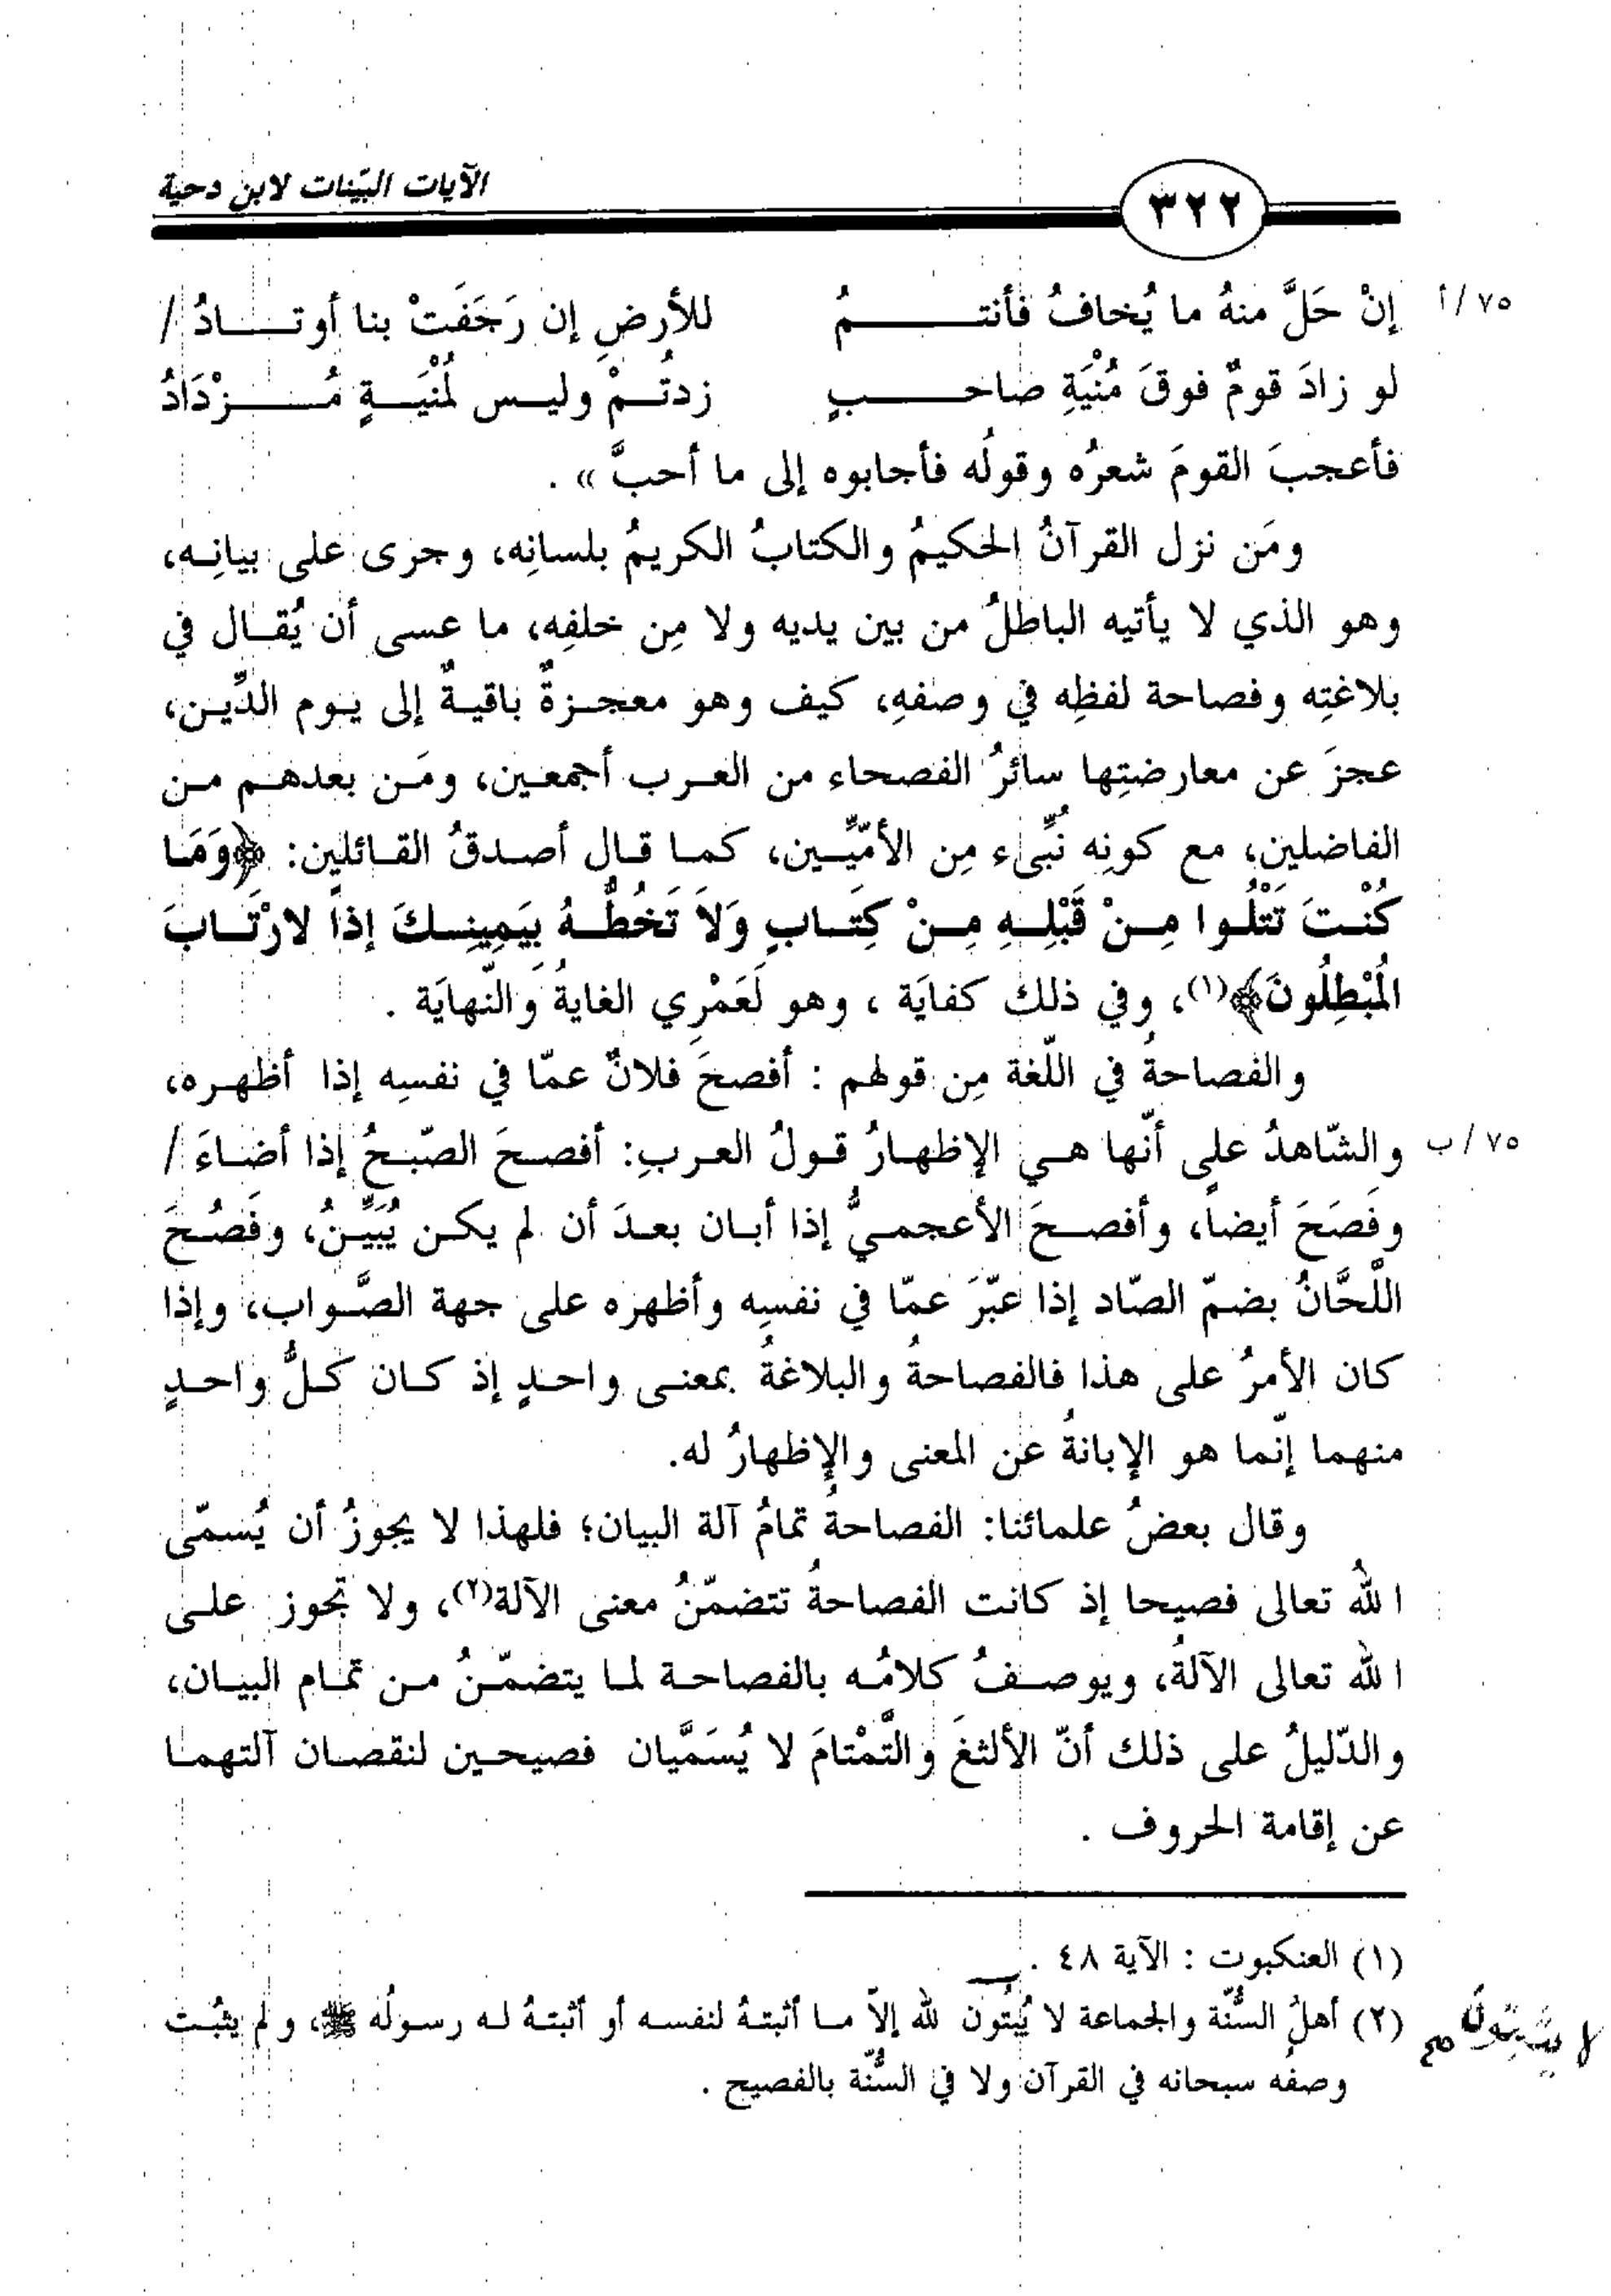 الآيات البيّنات لابن دحية
٣٢٢
٧٥/أ
إنْ حَلَّ منهُ ما يُخافُ فأنتـــــمُ للأرضِ إن رَجَفَتْ بنا أوتــــادُ /
لو زادَ قومٌ فوقَ مُنْيَةِ صاحـــــبٍ زدتُــمْ وليـس لُمنْيَـــةٍ مُـــزْدَادُ
فأعجبَ القومَ شعرُه وقولُه فأجابوه إلى ما أحبَّ » .
ومَن نزل القرآنُ الحكيمُ والكتابُ الكريمُ بلسانِه، وجرى على بيانِـه،
وهو الذي لا يأتيه الباطلُ من بين يديه ولا مِن خلفِه، ما عسى أن يُقـال في
بلاغتِه وفصاحة لفظِه في وصفهِ، كيف وهو معجـزةٌ باقيـةٌ إلى يـوم الدِّيـن،
عجزَ عن معارضتِها سائرُ الفصحاء من العـرب أجمعـين، ومَـن بعدهـم مـن
الفاضلين، مع كونِه نُبِّىء مِن الأمّيِّـين، كمـا قـال أصـدقُ القـائلين: ﴿وَمَـا
كُنْـتَ تَتْلُـوا مِـنْ قَبْلِـهِ مِـنْ كِتَـابٍ وَلاَ تَخُطُّـهُ بِيَمِينِـكَ إذاً لارْتَـابَ
الُمبْطِلُونَ﴾(١)، وفي ذلك كفايَة ، وهو لَعَمْرِي الغايةُ والنّهايَة .
والفصاحةُ في اللّغة مِن قولهم : أفصحَ فلانٌ عمّا في نفسِه إذا أظهـره،
٧٥/ب
والشّاهدُ على أنّها هـي الإظهـارُ قـولُ العـربِ: أفصـحَ الصّبـحُ إذا أضـاءَ /
وفَصَحَ أيضاً، وأفصـحَ الأعجمـيُّ إذا أبـان بعـدَ أن لم يكـن يُبَيِّـنُ، وفَصُـحَ
اللَّحَّانُ بضـمّ الصّاد إذا عبّرَ عمّا في نفسِه وأظهره على جهة الصَّـواب، وإذا
كان الأمرُ على هذا فالفصاحةُ والبلاغةُ بمعنـى واحـدٍ إذ كـان كـلُّ واحـدٍ
منهما إنّما هو الإبانةُ عن المعنى والإظهارُ له.
وقال بعضُ علمائنا: الفصاحةُ تمامُ آلة البيان؛ فلهذا لا يجوزُ أن يُسمّى
الله تعالى فصيحا إذ كانت الفصاحةُ تتضمّنُ معنى الآلة(٢)، ولا تجوز علـى
الله تعالى الآلةُ، ويوصـفُ كلامُـه بالفصاحـة لمـا يتضمّـنُ مـن تمـام البيـان،
والدّليلُ على ذلك أنّ الألثغَ والتَّمْتامَ لا يُسَمَّيان فصيحـين لنقصـان آلتهمـا
عن إقامة الحروف .
(١) العنكبوت : الآية ٤٨ .
(٢) أهلُ السُّنّة والجماعة لا يُبتُون لله إلاّ مـا أثبتـهُ لنفسـه أو أثبتـهُ لـه رسـولُه ﷺ، ولم يثبُـت
لا يثبتون
وصفُه سبحانه في القرآن ولا في السُّنّة بالفصيح .